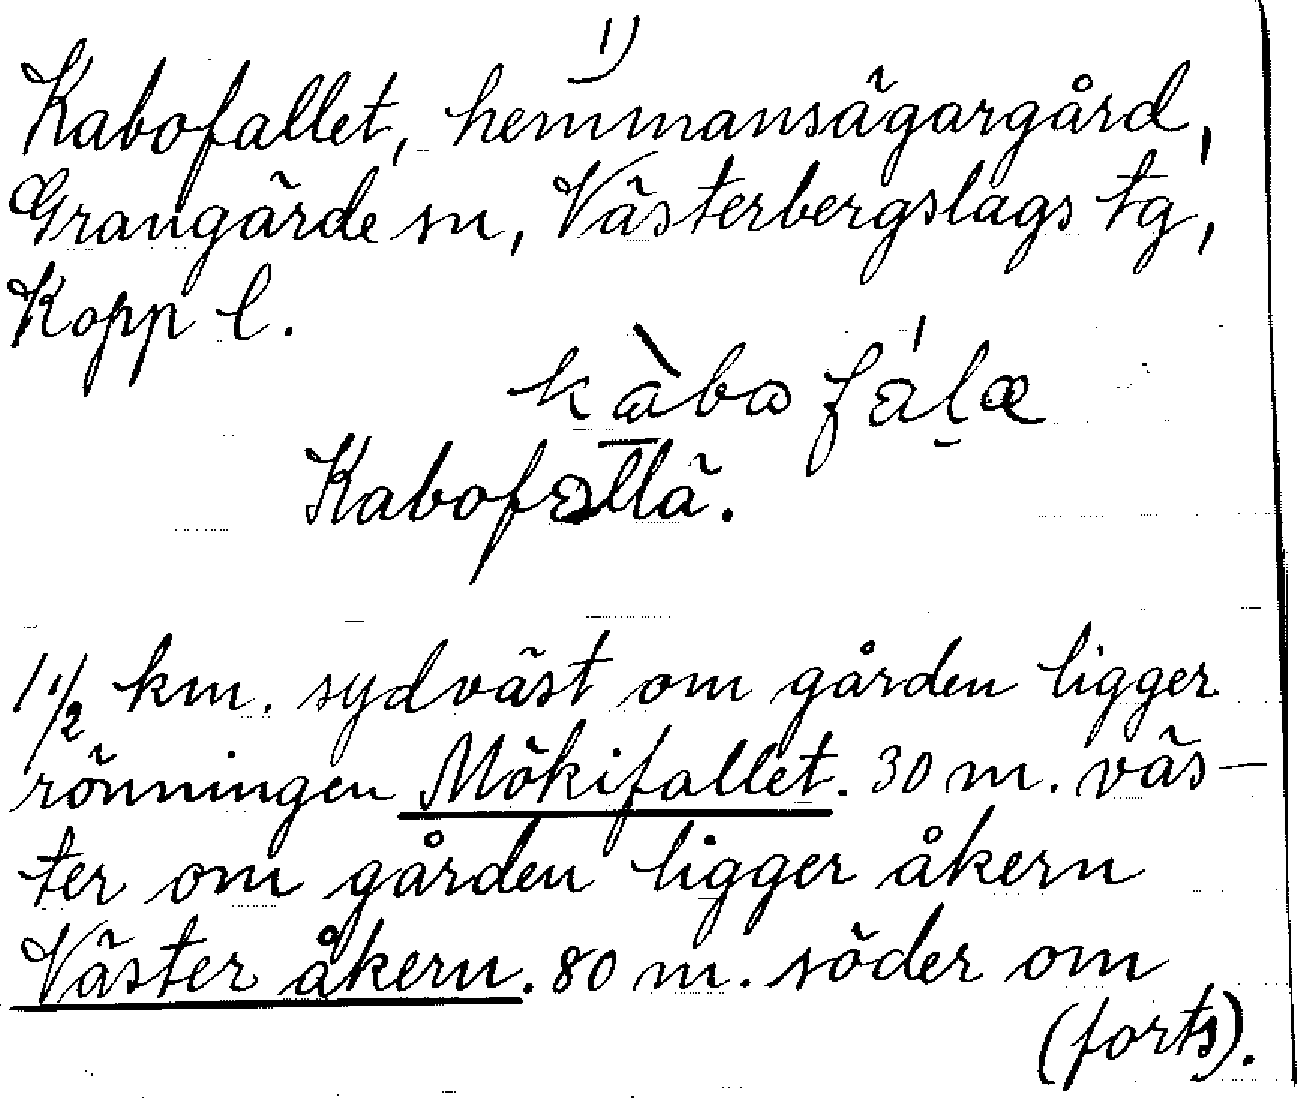 1)
Kabofallet, hemmansägargård,
Grangärde sn, Västerbergslags tg,
Kopp l.
Kabofallä.
1 1/2 km. sydväst om gården ligger
rönningen Mökifallet. 30 m. väs-
ter om gården ligger åkern
Väster åkern. 80 m. söder om
(forts).